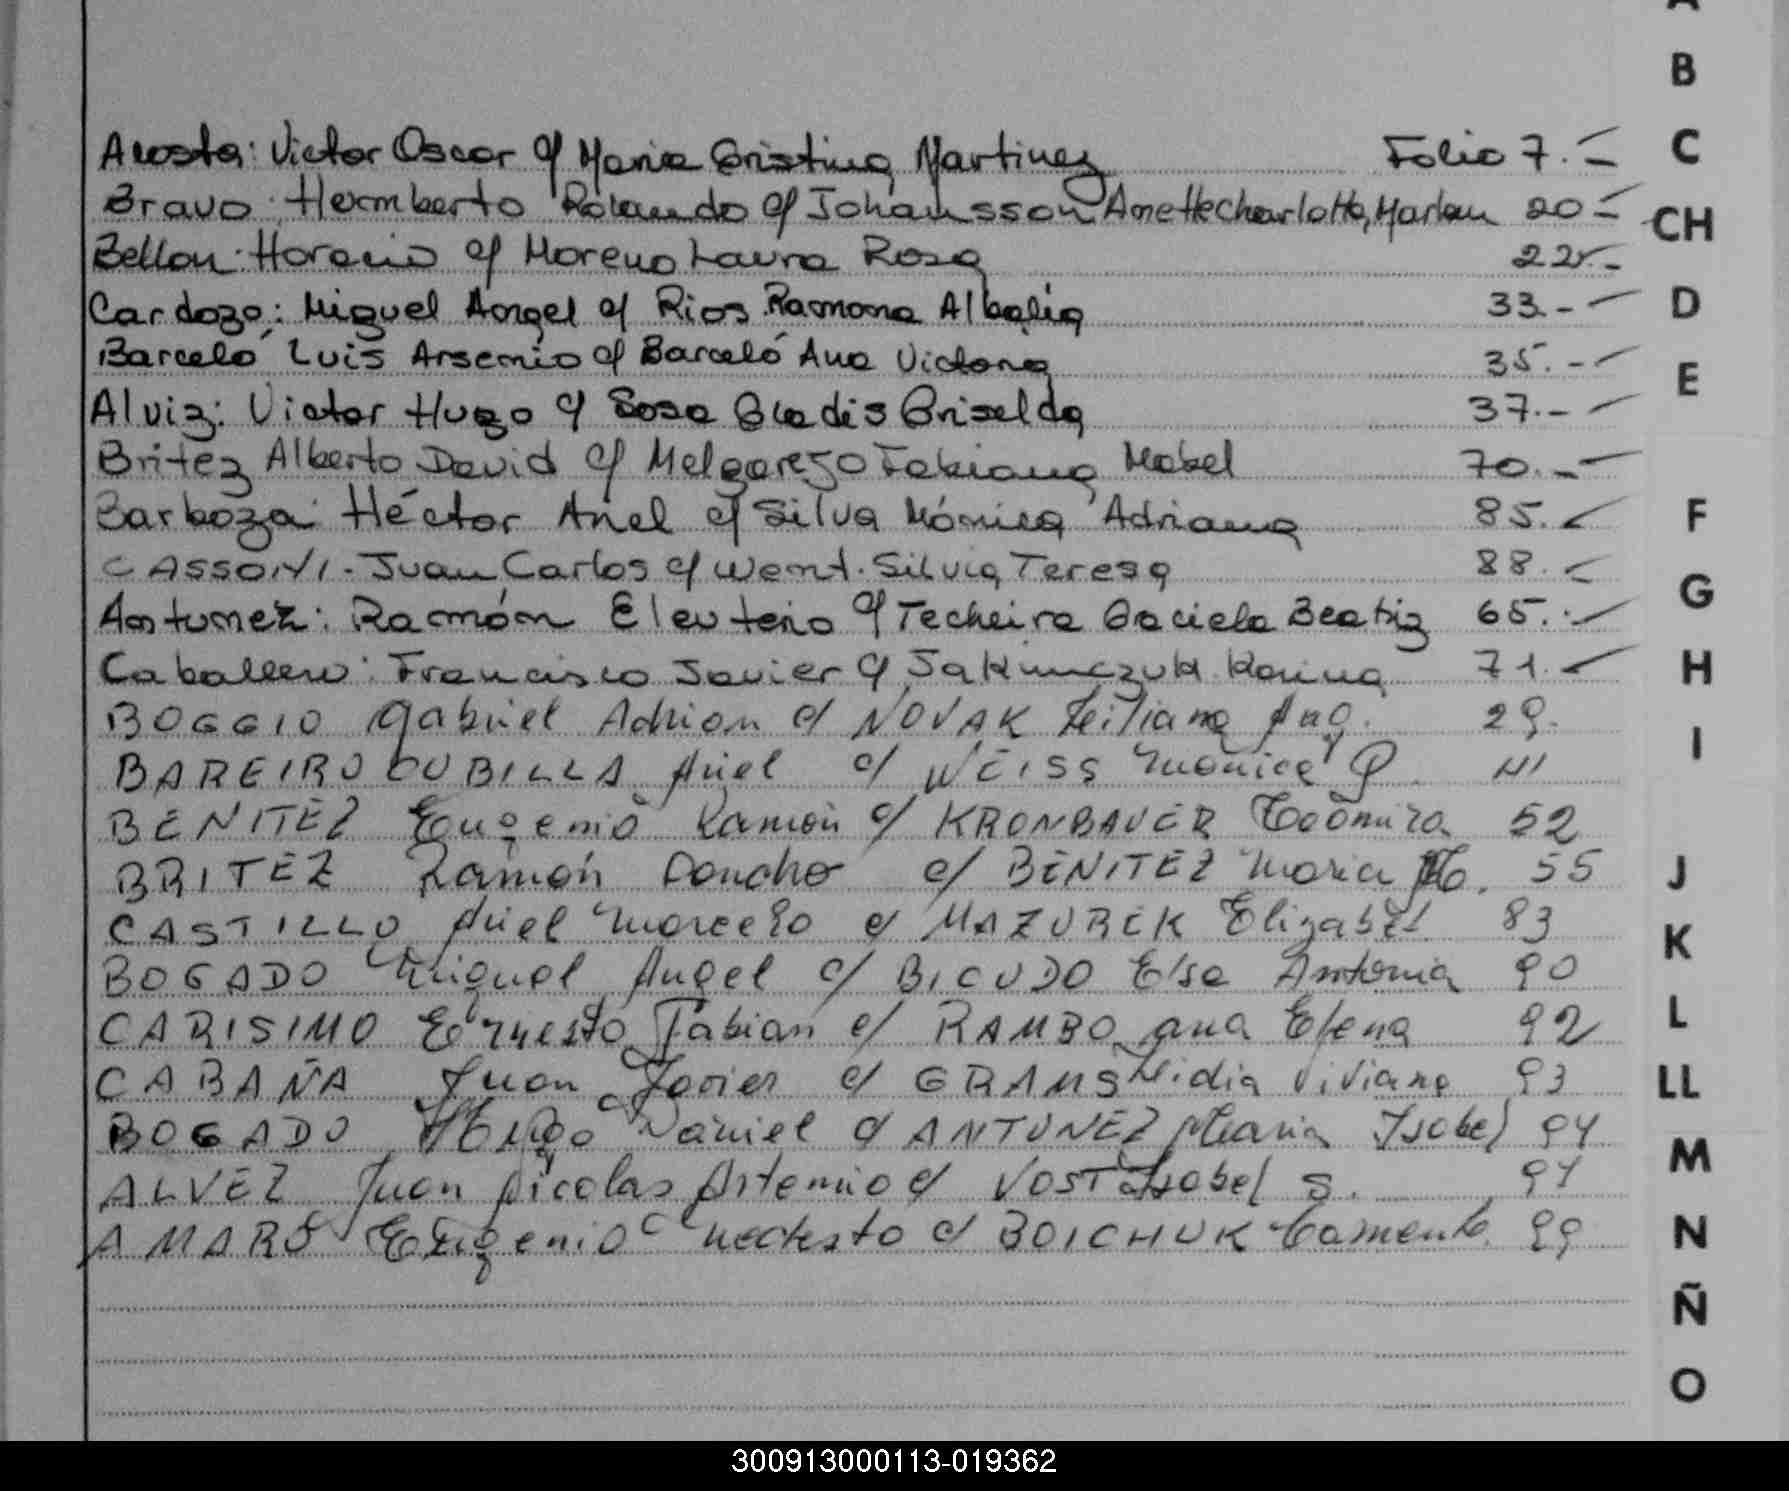 Acosta: Victor Oscar c/ Maria Cristina Martinez Folio 7.-
Bravo: Hermberto Rolando c/ Johansson Anette charlotte, Marlen 20-
Bellon: Horacio c/ Moreno Laura Rosa 22.-
Cardozo: Miguel Angel c/ Rios Ramona Albalia 33.-
Barceló Luis Arsenio c/ Barceló Ana Victoria 35.-
Alviz: Victor Hugo c/ Sosa Gladis Griselda 37.-
Britez Alberto David c/ Melgarejo Fabiana Mabel 70.-
Barboza: Héctor Ariel c/ Silva Mónica Adriana 85.
CASSONI - Juan Carlos c/ Went. Silvia Teresa 88.
Antunez: Ramón Eleuterio c/ Techeira Graciela Beatriz 65.
Caballero: Francisco Javier c/ Jakimczuk Karina 71.
BOGGIO Gabriel Adrian c/ NOVAK Ana. 29.
BAREIRO CUBILLA Ariel c/ WEISS Monica
BENITEZ Eugenio Ramón c/ KRONBAUER 52
BRITEZ Ramón c/ BENITEZ Maria 55
CASTILLO Ariel Marcelo c/ MAZUREK Elizabet 83
BOGADO Miguel Angel c/ BICUDO Elsa Antonia 90
CARISIMO Ernesto Fabian c/ RAMBO ana Elena 92
CABAÑA Juan Javier c/ GRAMS Nidia Viviana 93
BOGADO Hugo Daniel c/ ANTUNEZ Maria Isabel 94
ALVEZ Juan Nicolas Artemio c/ Isabel S.
AMARO Eugenio c/ BOICHUK 99
A
B
C
CH
D
E
F
G
H
I
J
K
L
LL
M
N
Ñ
O
300913000113-019362